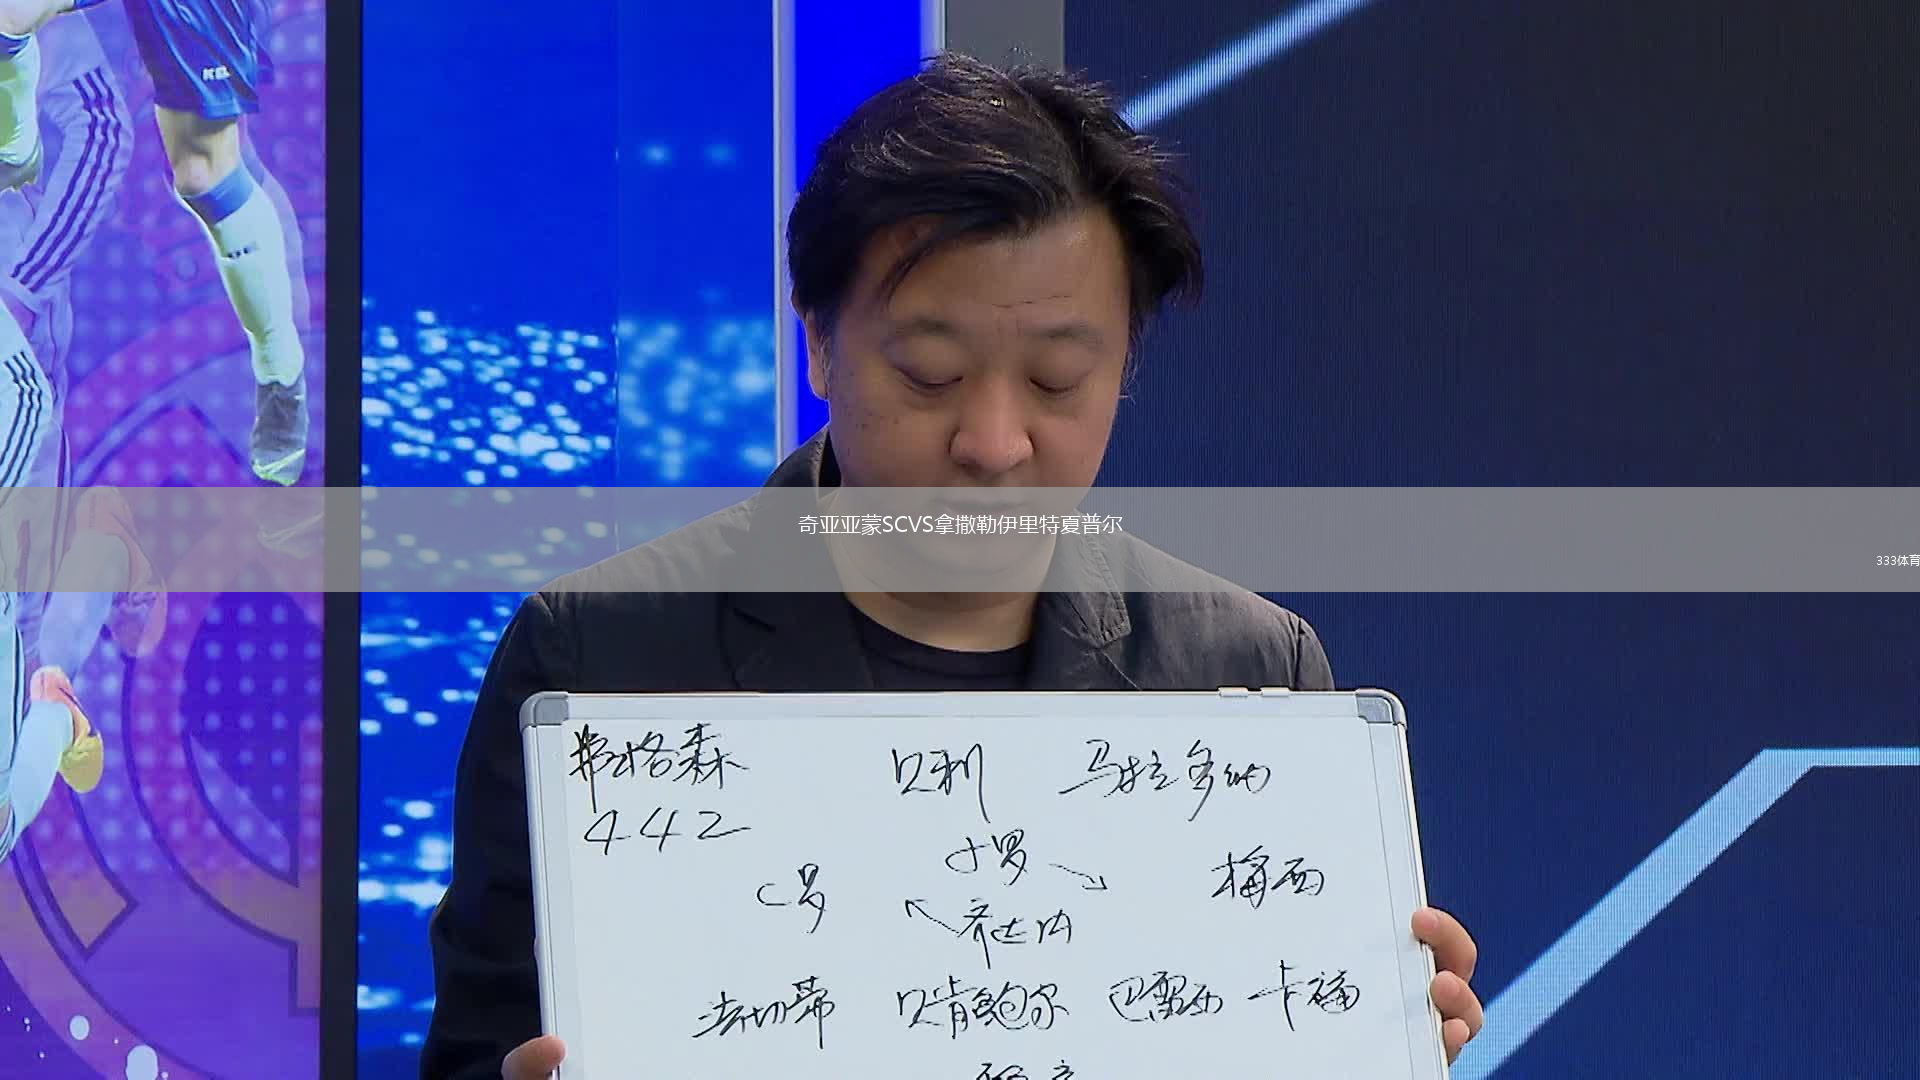 KEL
奇亚亚蒙SCVS拿撒勒伊里特夏普尔
333体育
弗格森 贝利 马拉多纳
442
小罗
C罗 梅西
齐达内
法切蒂 贝肯鲍尔 巴雷西 卡福